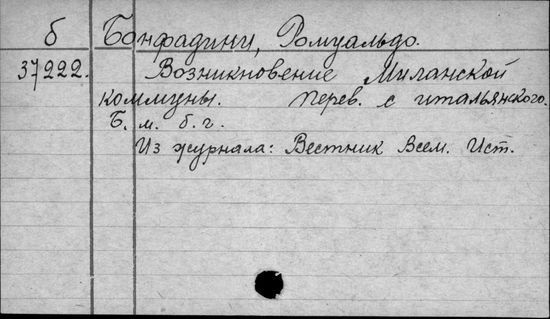 б Бонфадини, Ромуальдо.
37222. Возникновение Миланской
коммуны. Перев. с итальянского.
Б. м. б. г.
Из журнала: Вестник Всем. Ист.